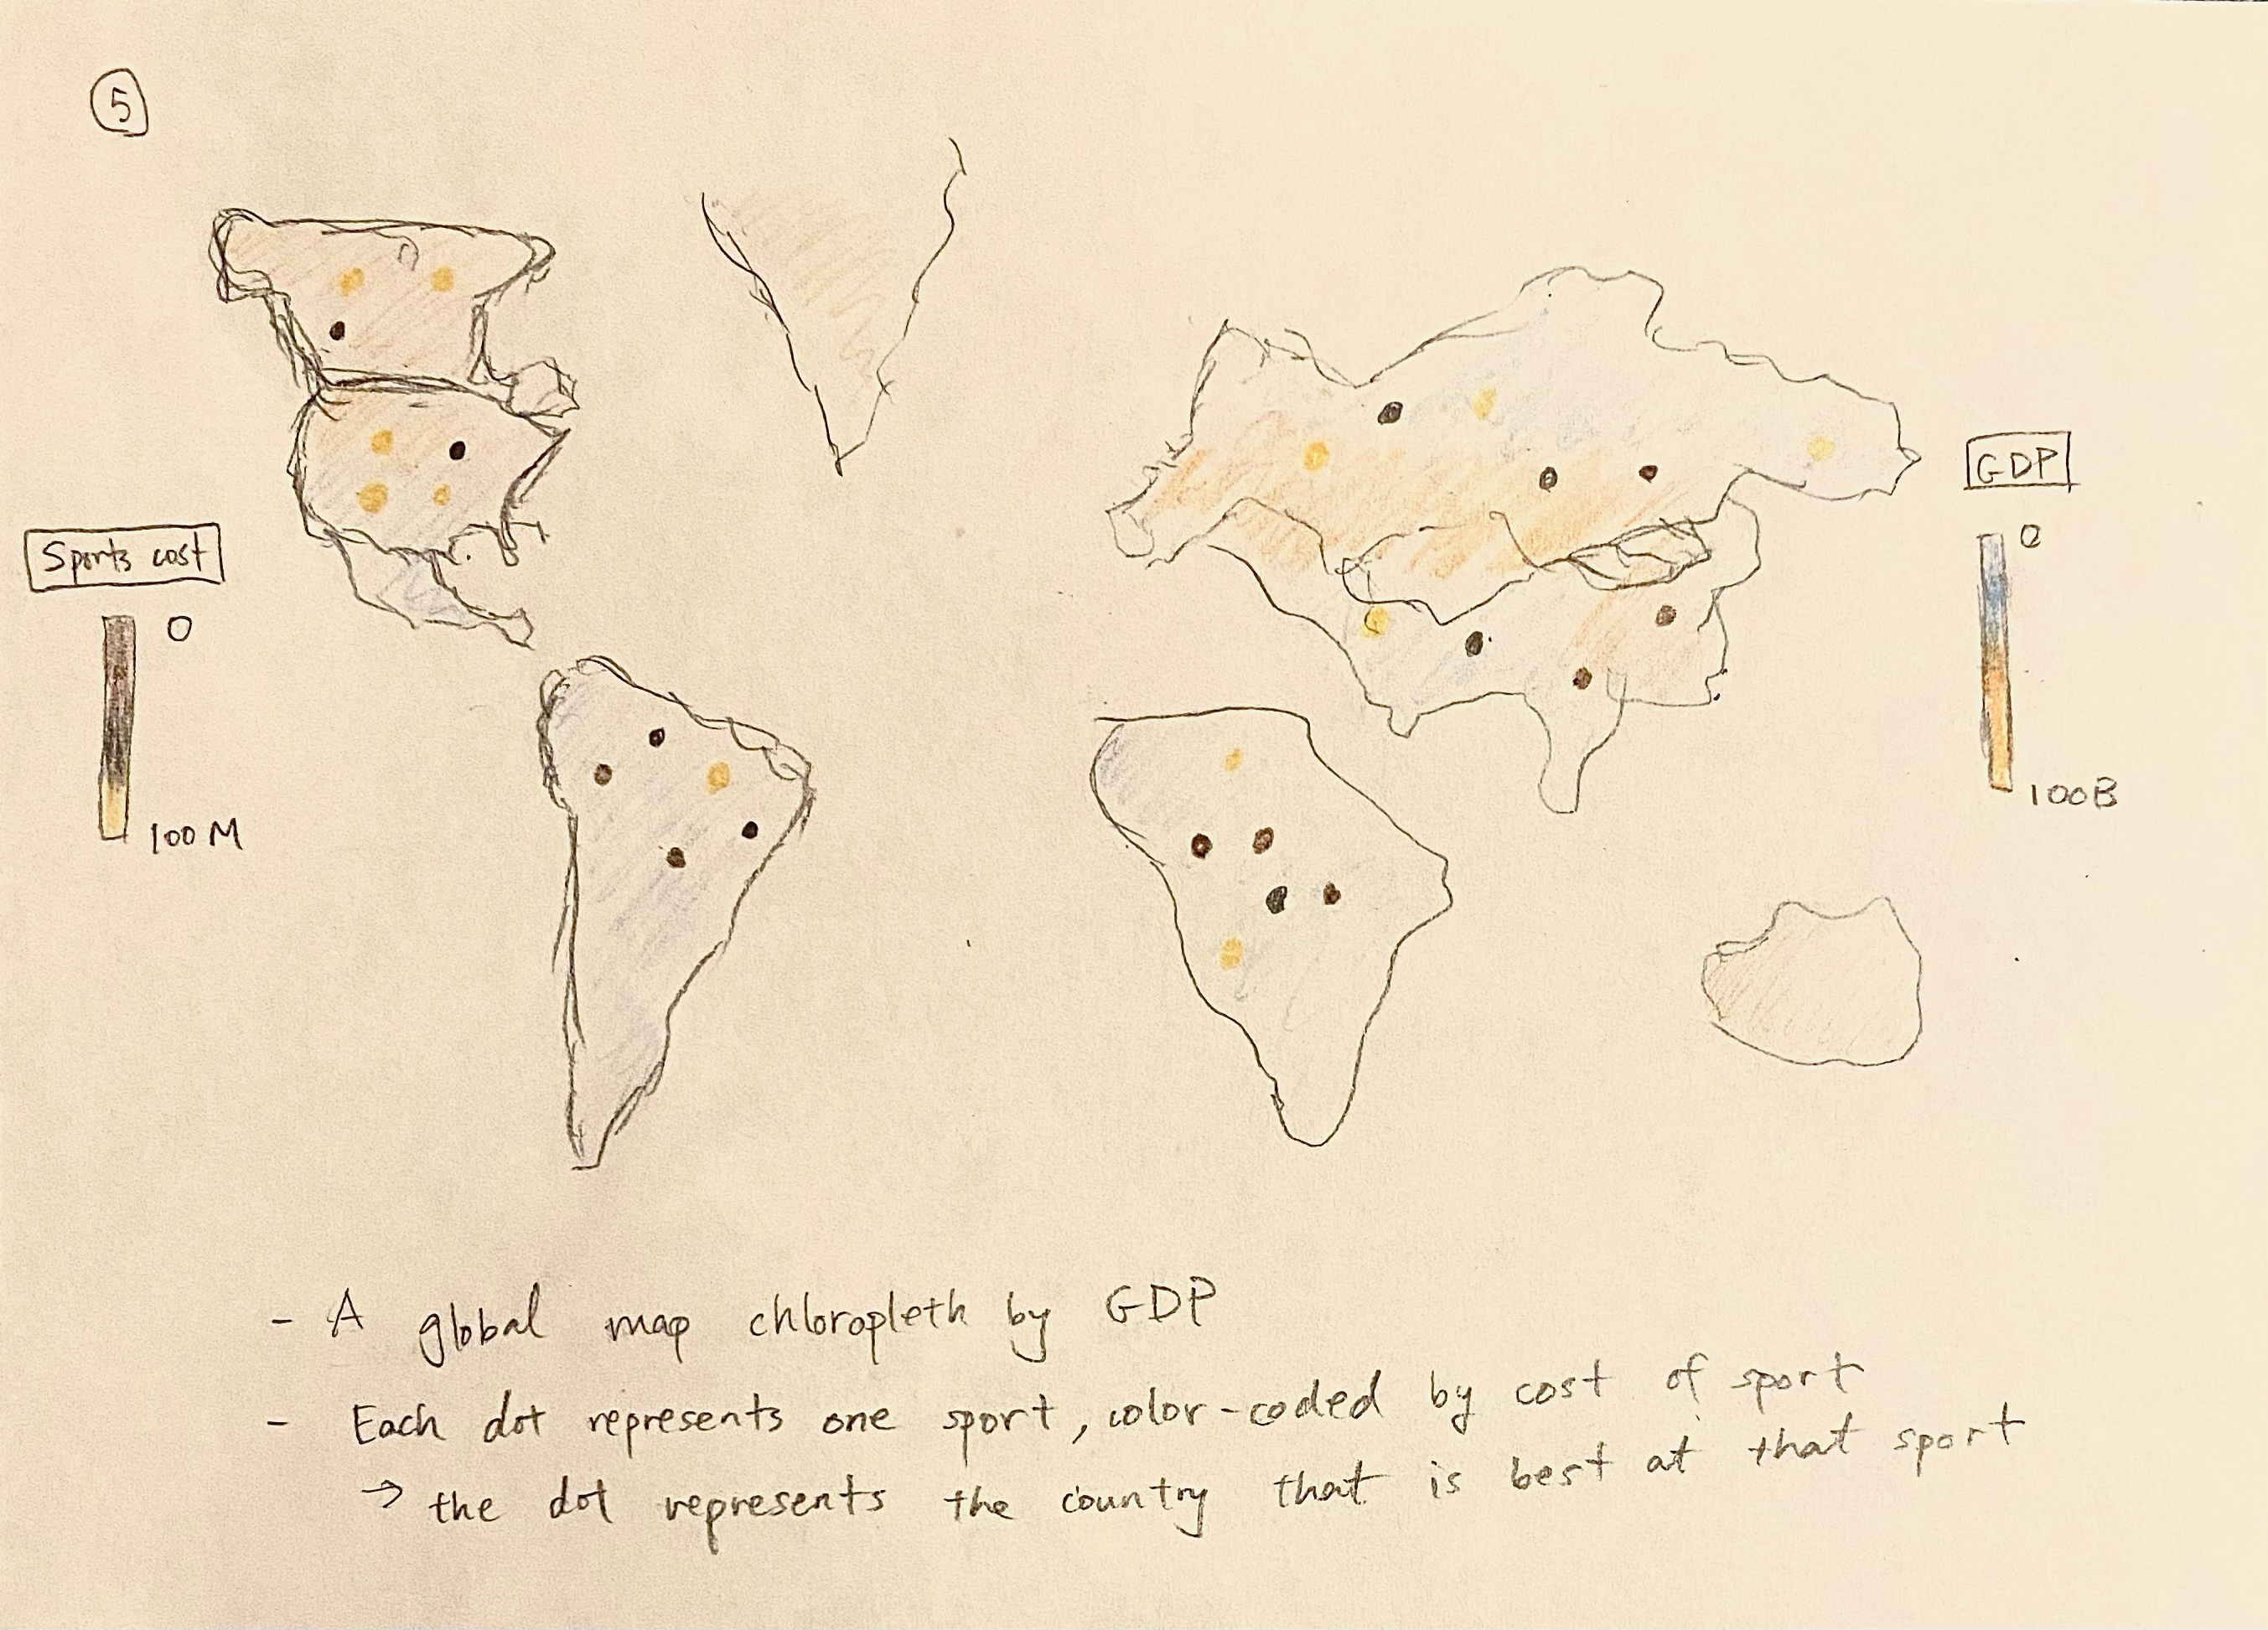 5
Sports cost
0
100M
GDP
0
100B
- A global map chloropleth by GDP
- Each dot represents one sport, color-coded by cost of sport
→ the dot represents the country that is best at that sport